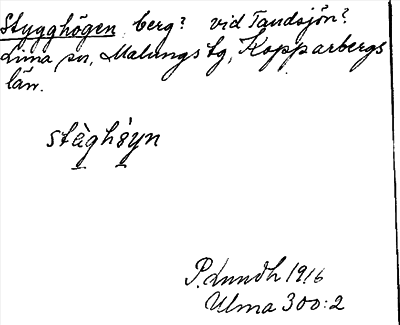 Stygghögen, berg? vid Tandsjön?
Lima sn, Malungs tg, Kopparbergs
län.
P. Lundh 1916
Ulma 300:2